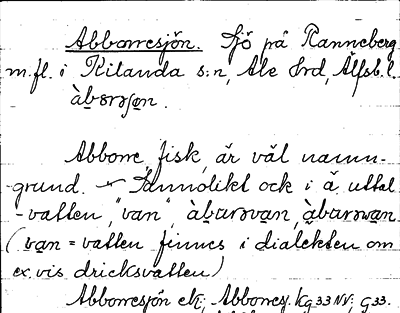 Abborresjön. Sjö på Ranneberg
m.fl. i Kilanda s:n, Ale hrd, Älfsb. l.
àbɷrəʃøn.
Abborre, fisk, är väl namn-
grund. Sannolikt ock i ä. uttal
-vatten, "van", àbɷrəvan, àbɷrəvan
(van = vatten finnes i dialekten om
ex.vis dricksvatten)
Abborresjön ek; Abborresj. kg 33 NV; G33.